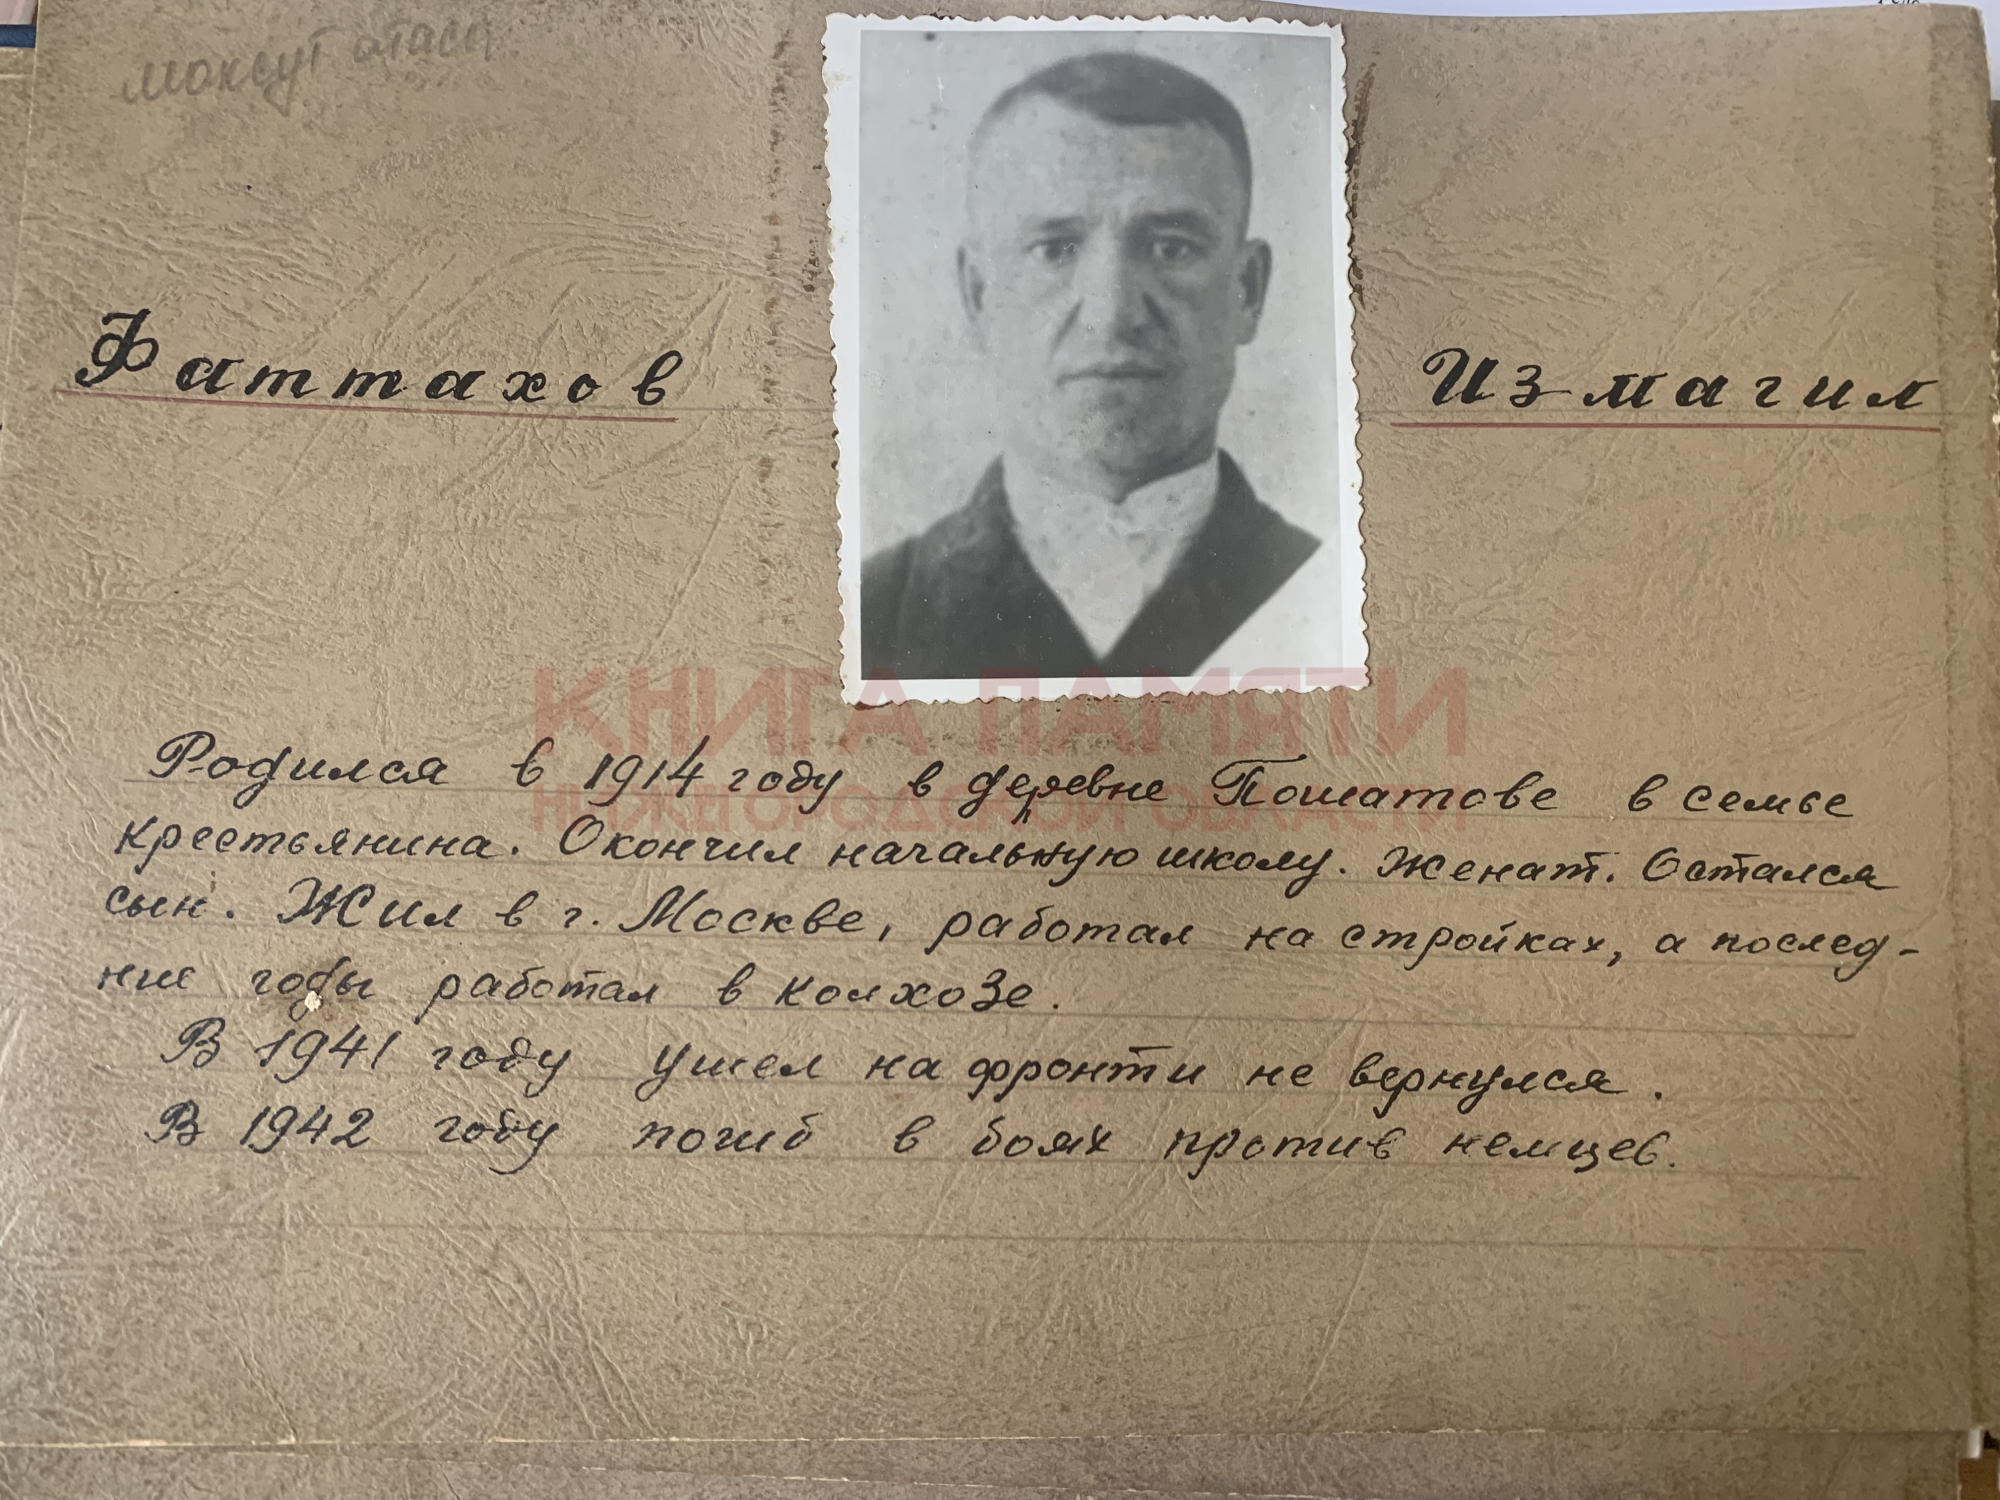 Моксут атасы
Фаттахов Измагил
КНИГА ПАМЯТИ
НИЖЕГОРОДСКОЙ ОБЛАСТИ
Родился в 1914 году в деревне Пошатове в семье
крестьянина. Окончил начальную школу. Женат. Остался
сын. Жил в г. Москве, работал на стройках, а послед-
ние годы работал в колхозе.
В 1941 году ушел на фронт и не вернулся.
В 1942 году погиб в боях против немцев.